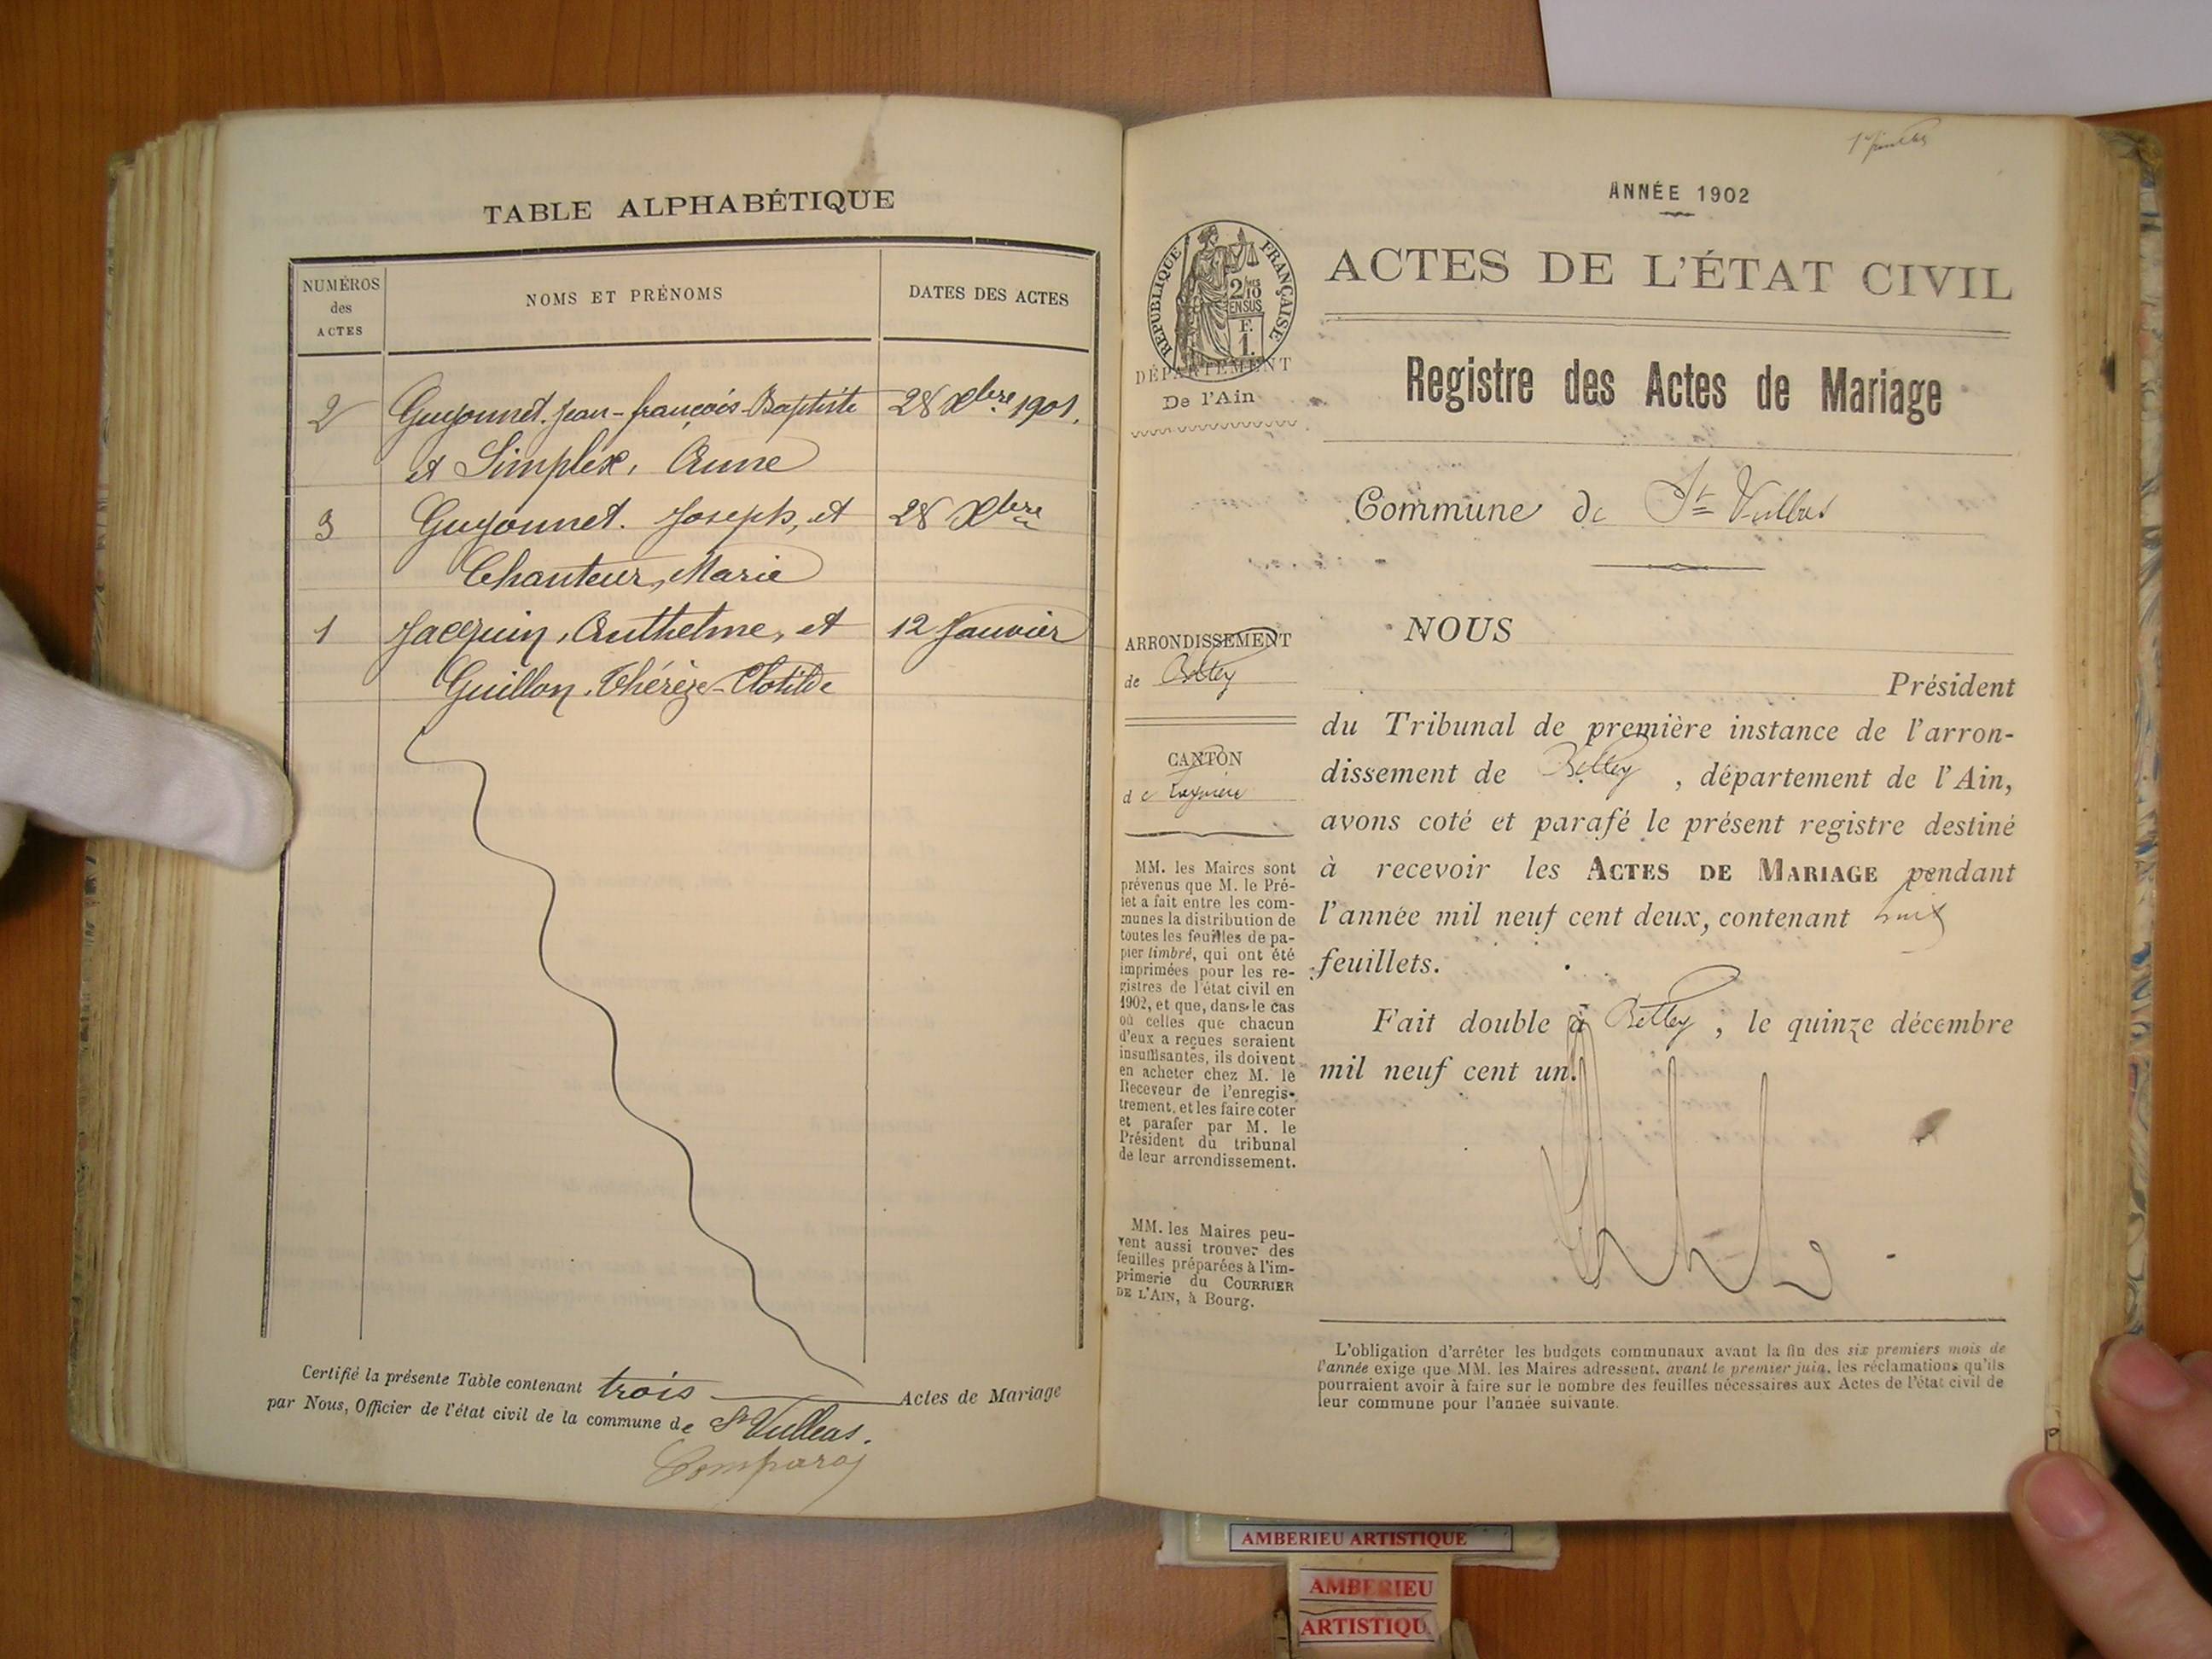 TABLE ALPHABÉTIQUE
NUMÉROS
des
ACTES
NOMS ET PRÉNOMS
DATES DES ACTES
2 Guyonnet. Jean-françois-Baptiste 28 Xbre 1901.
et Simplex, Anne
3 Guyonnet. Joseph, et 28 Xbre
Chanteur, Marie
1 Jacquin, Anthelme, et 12 Janvier
Guillon, Thérèze-Clotilde
Certifié la présente Table contenant trois Actes de Mariage
par Nous, Officier de l'état civil de la commune de St Vulbas.
ANNÉE 1902
ACTES DE L'ÉTAT CIVIL
RÉPUBLIQUE FRANÇAISE
2/10
EN SUS
F.
1.
DÉPARTEMENT
De l'Ain
Registre des Actes de Mariage
Commune de St Vulbas
ARRONDISSEMENT
de Belley
CANTON
de Lagnieu
MM. les Maires sont
prévenus que M. le Pré-
fet a fait entre les com-
munes la distribution de
toutes les feuilles de pa-
pier timbré, qui ont été
imprimées pour les re-
gistres de l'état civil en
1902, et que, dans le cas
où celles que chacun
d'eux a reçues seraient
insuffisantes, ils doivent
en acheter chez M. le
Receveur de l'enregis-
trement, et les faire coter
et parafer par M. le
Président du tribunal
de leur arrondissement.
MM. les Maires peu-
vent aussi trouver des
feuilles préparées à l'im-
primerie du COURRIER
DE L'AIN, à Bourg.
NOUS
Président
du Tribunal de première instance de l'arron-
dissement de Belley, département de l'Ain,
avons coté et parafé le présent registre destiné
à recevoir les ACTES DE MARIAGE pendant
l'année mil neuf cent deux, contenant huit
feuillets.
Fait double à Belley, le quinze décembre
mil neuf cent un.
L'obligation d'arrêter les budgets communaux avant la fin des six premiers mois de
l'année exige que MM. les Maires adressent, avant le premier juin, les réclamations qu'ils
pourraient avoir à faire sur le nombre des feuilles nécessaires aux Actes de l'état civil de
leur commune pour l'année suivante.
AMBERIEU ARTISTIQUE
AMBERIEU
ARTISTIQU